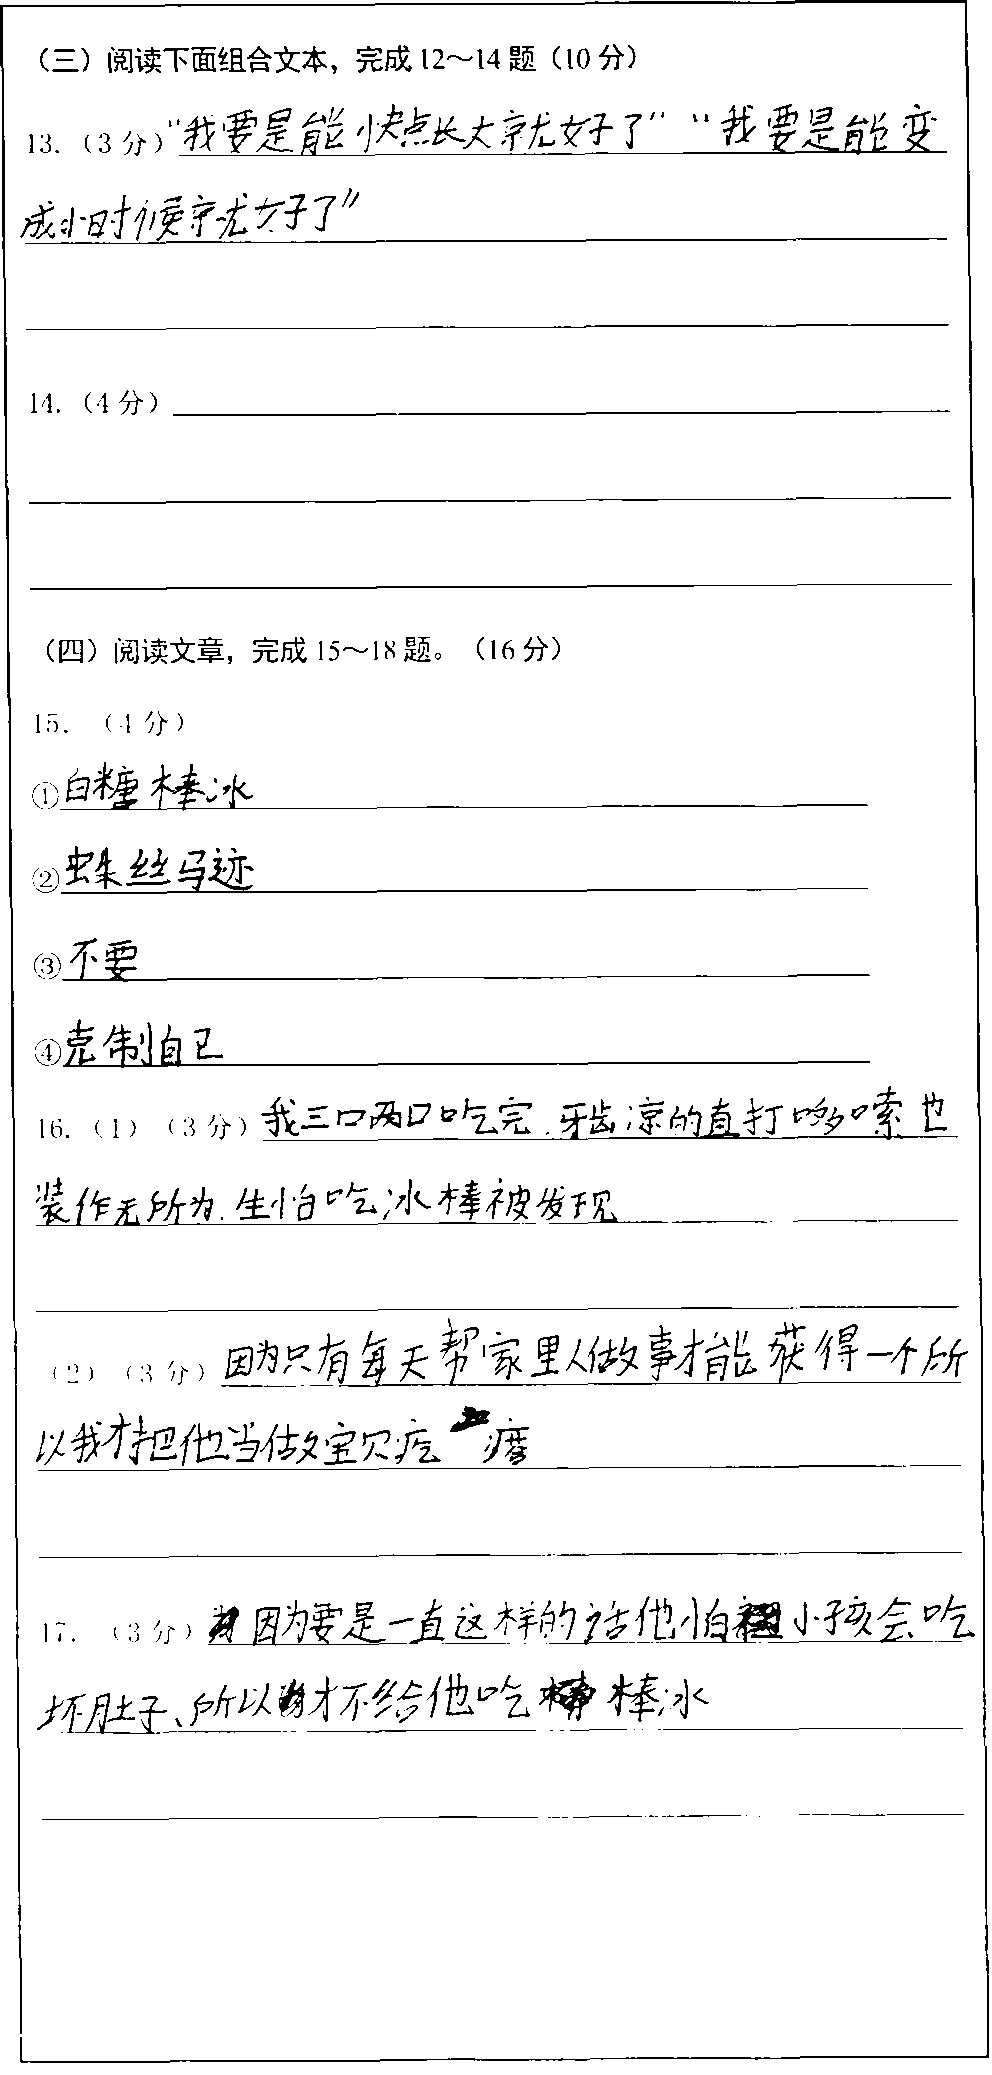 （三）阅读下面组合文本，完成12～14题（10分）
13.（3分）“我要是能快点长大就好了”“我要是能变
成小时候就好了”
14.（4分）
（四）阅读文章，完成15～18题。（16分）
15.（4分）
①白糖棒冰
②蛛丝马迹
③不要
④克制自己
16.（1）（3分）我三口两口吃完.牙齿凉的直打哆嗦也
装作无所为.生怕吃冰棒被发现
（2）（3分）因为只有每天帮家里人做事才能获得一个所
以我才把他当做宝贝疙瘩
17.（3分）因为要是一直这样的话他怕小孩会吃
坏肚子、所以才不给他吃棒冰